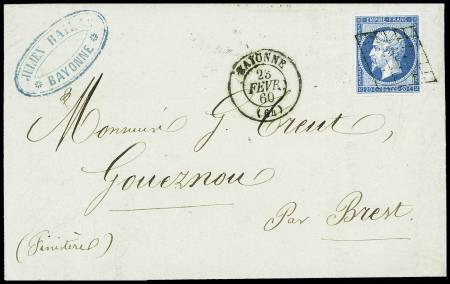 JULIEN
BAYONNE
BAYONNE
23
FEVR.
60
(64)
EMPIRE FRANC.
20 C POSTES 20 C
Monsieur G. Treut,
Goueznou
Par Brest.
(Finistère)